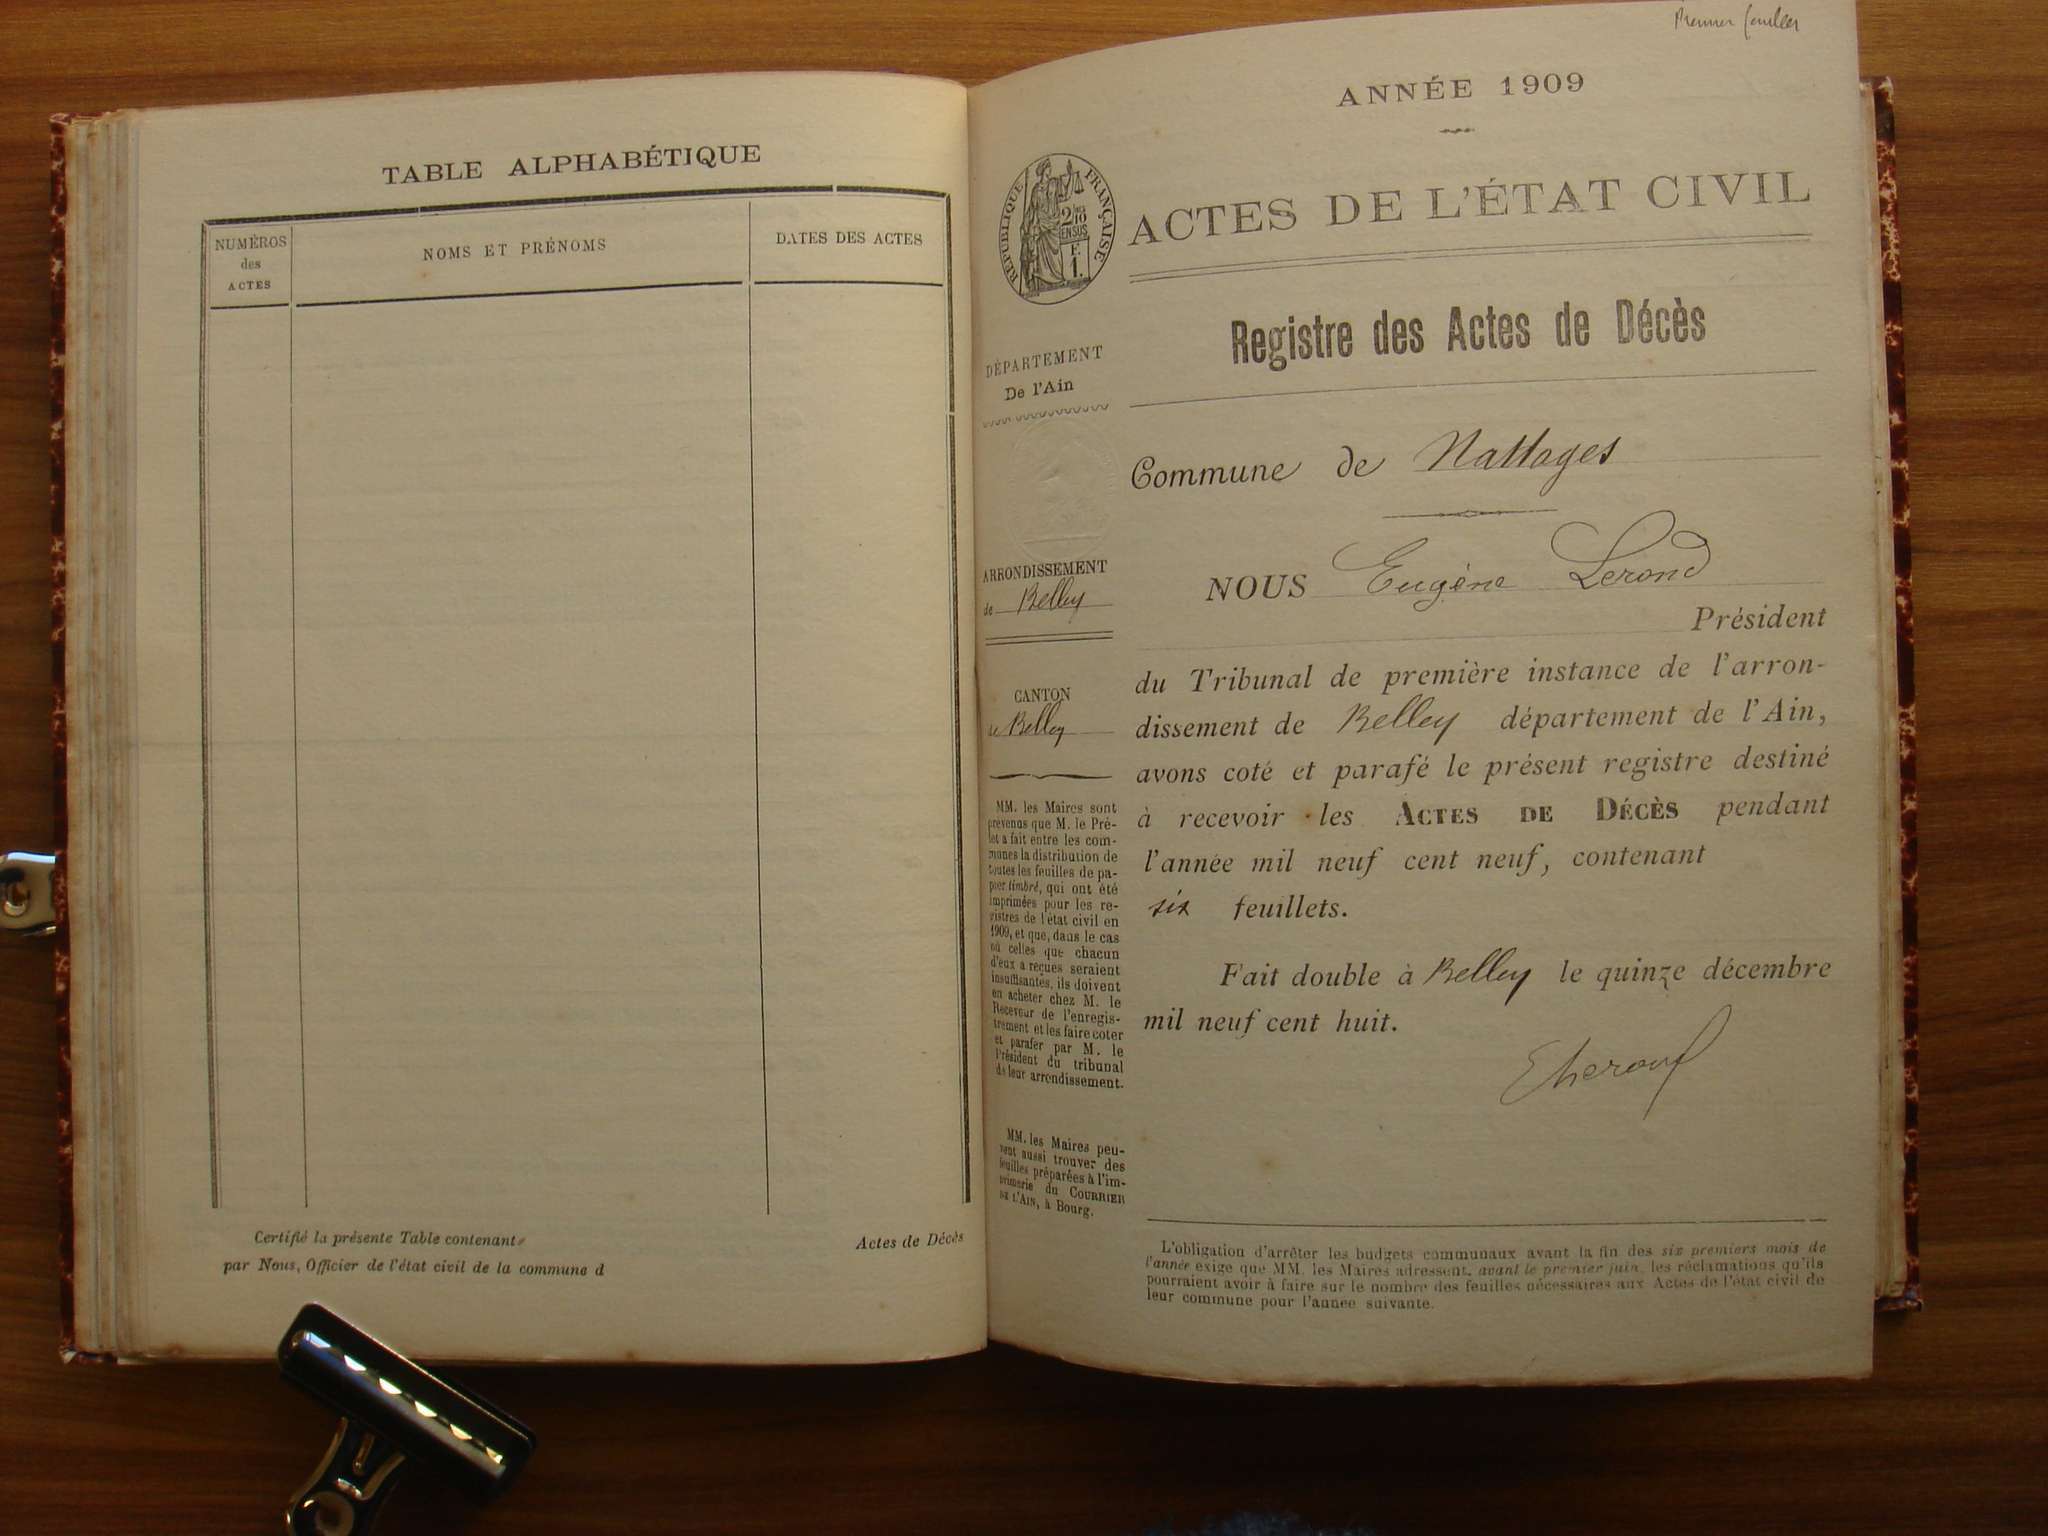 TABLE ALPHABÉTIQUE
NUMÉROS
des
ACTES
NOMS ET PRÉNOMS
DATES DES ACTES
Certifié la présente Table contenant
par Nous, Officier de l'état civil de la commune d
Actes de Décès
Premier feuillet
ANNÉE 1909
RÉPUBLIQUE FRANÇAISE
ACTES DE L'ÉTAT CIVIL
Registre des Actes de Décès
DÉPARTEMENT
De l'Ain
Commune de Nattages
ARRONDISSEMENT
de Belley
CANTON
de Belley
MM. les Maires sont
prévenus que M. le Pré-
fet a fait entre les com-
munes la distribution de
toutes les feuilles de pa-
pier timbré, qui ont été
imprimées pour les re-
gistres de l'état civil en
1909, et que, dans le cas
où celles que chacun
d'eux a reçues seraient
insuffisantes, ils doivent
en acheter chez M. le
Receveur de l'enregis-
trement et les faire coter
et parafer par M. le
Président du tribunal
de leur arrondissement.
MM. les Maires peu-
vent aussi trouver des
feuilles préparées à l'im-
primerie du COURRIER
DE L'AIN, à Bourg.
NOUS Eugène Lerond
Président
du Tribunal de première instance de l'arron-
dissement de Belley département de l'Ain,
avons coté et parafé le présent registre destiné
à recevoir les ACTES DE DÉCÈS pendant
l'année mil neuf cent neuf, contenant
six feuillets.
Fait double à Belley le quinze décembre
mil neuf cent huit.
ELerond
L'obligation d'arrêter les budgets communaux avant la fin des six premiers mois de
l'année exige que MM. les Maires adressent, avant le premier juin, les réclamations qu'ils
pourraient avoir à faire sur le nombre des feuilles nécessaires aux Actes de l'état civil de
leur commune pour l'année suivante.